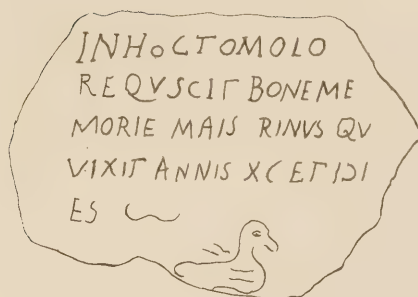 INHoCTOMOLO
REQVSCIT BONEME
MORIE MAIS RINVS QV
VIXIT ANNIS XC ET IDI
ES